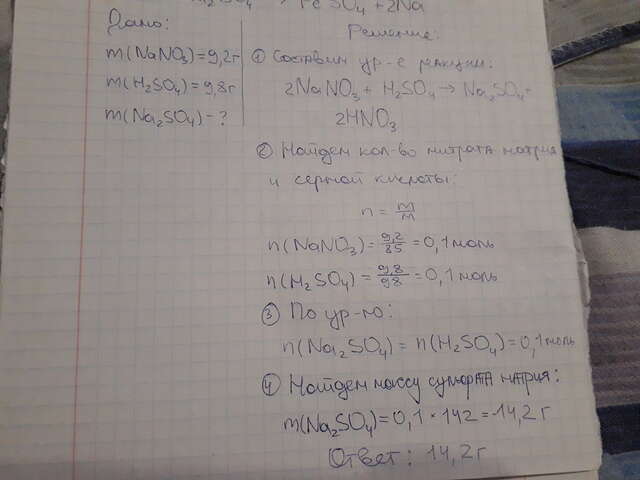 → FeSO₄ + 2Na
Дано:
m(NaNO₃)=9,2г
m(H₂SO₄)=9,8г
m(Na₂SO₄)-?
Решение:
① Составим ур-е реакции:
2NaNO₃ + H₂SO₄ → Na₂SO₄ +
2HNO₃
② Найдем кол-во нитрата натрия
и серной кислоты:
n = m/M
n(NaNO₃) = 9,2/85 = 0,1моль
n(H₂SO₄) = 9,8/98 = 0,1моль
③ По ур-ю:
n(Na₂SO₄) = n(H₂SO₄) = 0,1моль
④ Найдем массу сульфата натрия:
m(Na₂SO₄)=0,1*142=14,2г
Ответ: 14,2г